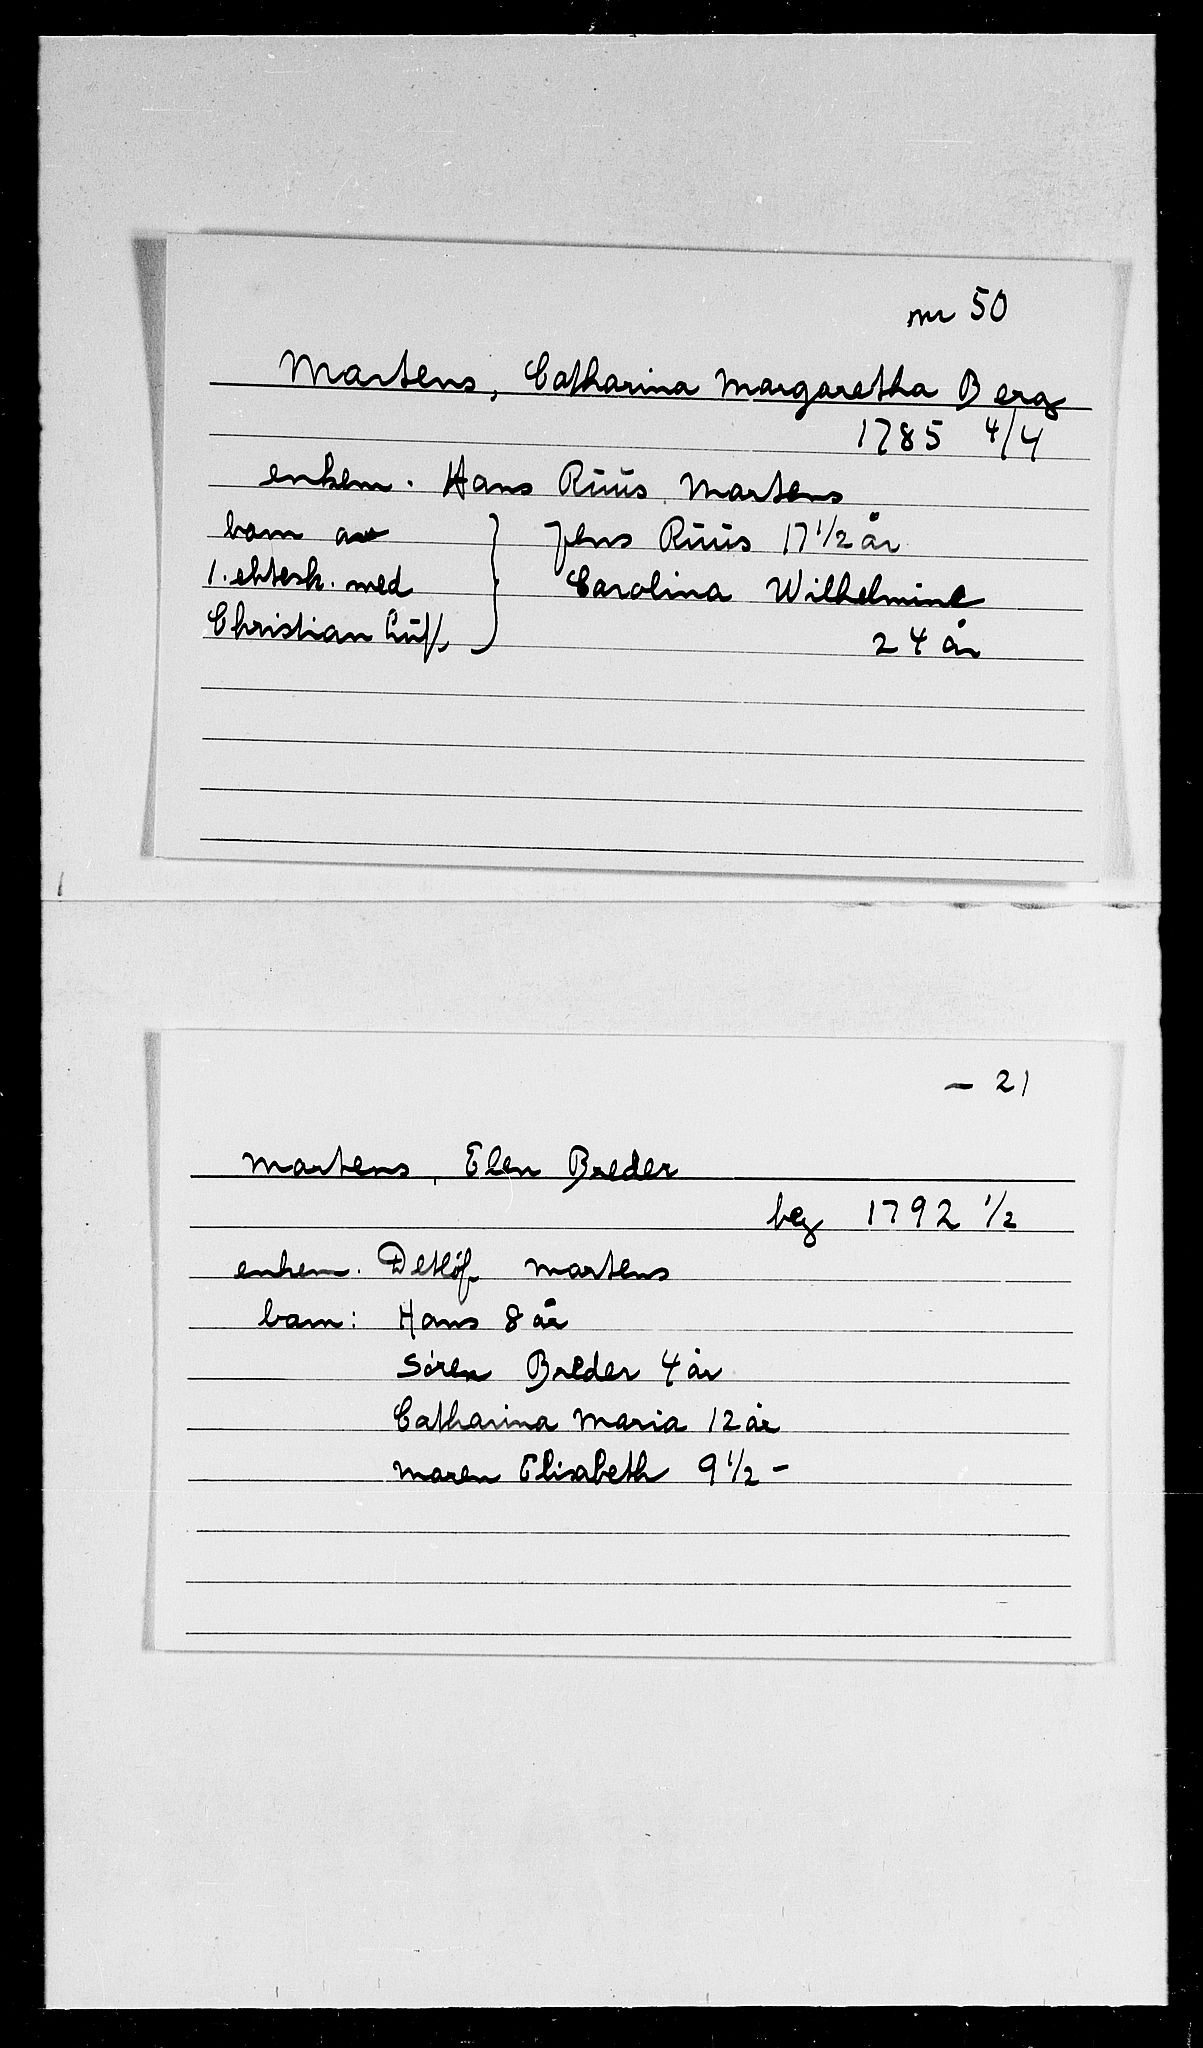 nr 50
Martens, Catharina Margaretha Berg
1785 4/4
enkem. Hans Rüüs Martens
barn av } Jens Rüüs 17 1/2 år
1. ektesk. med Carolina Wilhelmine
Christian 24 år
— 21
Martens, Elen Breder
beg 1792 1/2
enkem. Detløf Martens
barn: Hans 8 år
Sören Breder 4 år
Catharina Maria 12 år
Maren Elisabeth 9 1/2 –